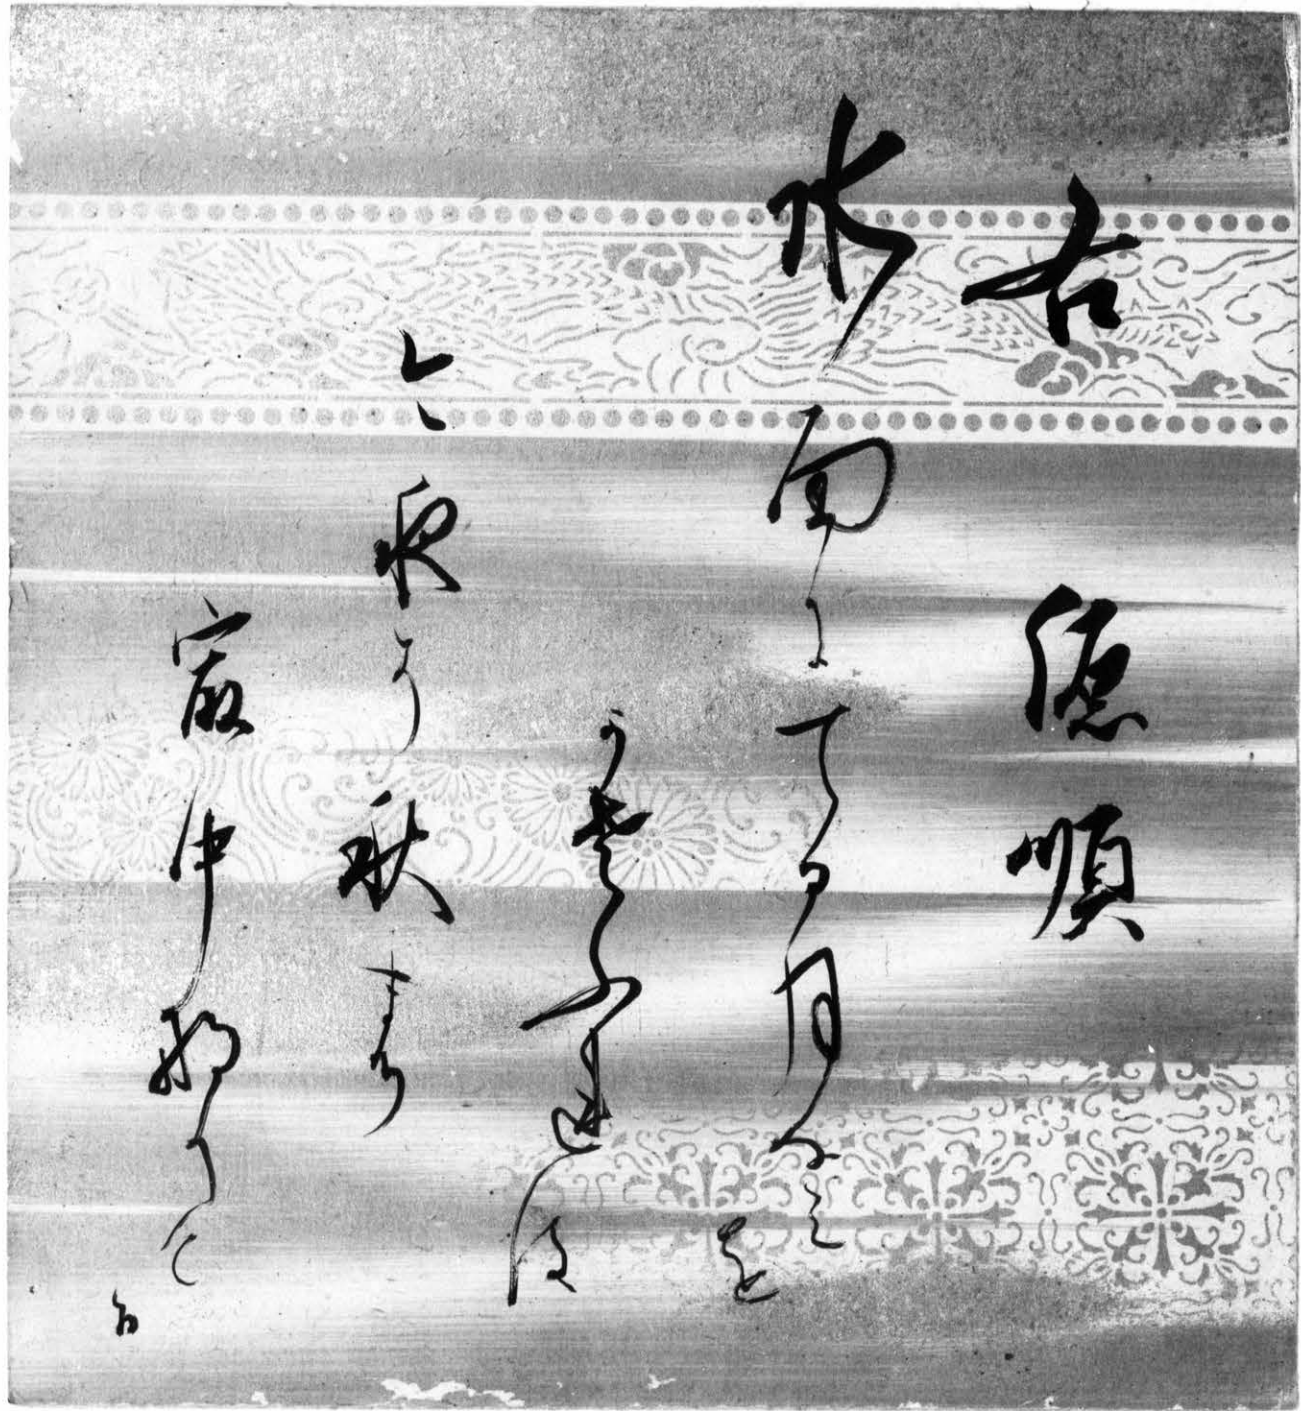 右 源順
水面にてる月なみを
かそふれは
今夜そ秋の
最中なりける